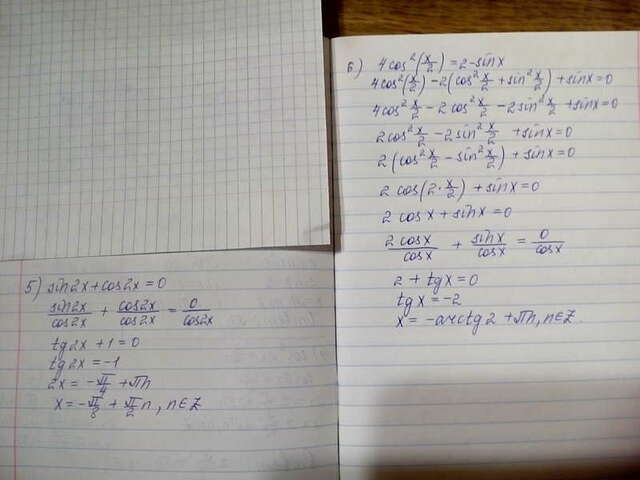 5) sin2x + cos2x = 0
sin2x/cos2x + cos2x/cos2x = 0/cos2x
tg2x + 1 = 0
tg2x = -1
2x = -π/4 + πn
x = -π/8 + π/2 n, n∈Z
6) 4cos²(x/2) = 2 - sinx
4cos²(x/2) - 2(cos² x/2 + sin² x/2) + sinx = 0
4cos² x/2 - 2cos² x/2 - 2sin² x/2 + sinx = 0
2cos² x/2 - 2sin² x/2 + sinx = 0
2(cos² x/2 - sin² x/2) + sinx = 0
2 cos(2·x/2) + sinx = 0
2 cosx + sinx = 0
2cosx/cosx + sinx/cosx = 0/cosx
2 + tgx = 0
tgx = -2
x = -arctg2 + πn, n∈Z.